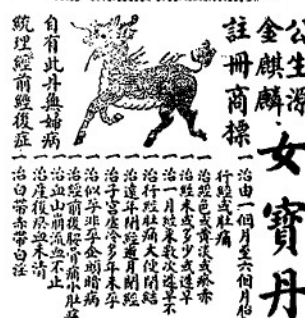 公生湯
金麒麟
女寶丹
註冊商標
自有此丹無婦病
統理經前經後症
一治由一個月至六個月胎
行經或肚痛
一治經色或黃淡或瘀赤
一治經來或多少或遲早
一治一月經來數次遲早不
一治行經肚痛大便閉結
一治遠年閉經逾月閉經
一治子宮虛冷多年未孕
一治似孕非孕企頭暗病
一治經前經後腰骨痛小肚疼
一治血山崩流血不止
一治產後瘀血未清
一治白帶赤帶白淫